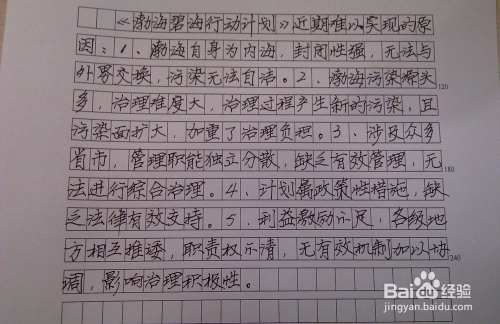 《渤海碧海行动计划》近期难以实现的原
因：1、渤海自身为内海，封闭性强，无法与
外界交换，污染无法自洁。2、渤海污染源头
120
多，治理难度大，治理过程产生新的污染，且
污染面扩大，加重了治理负担。3、涉及众多
省市，管理职能独立分散，缺乏有效管理，无
180
法进行综合治理。4、计划属政策性措施，缺
乏法律有效支持。5、利益激励不足，各级地
方相互推诿，职责权不清，无有效机制加以协
240
调，影响治理积极性。
Baidu经验
jingyan.baidu.com